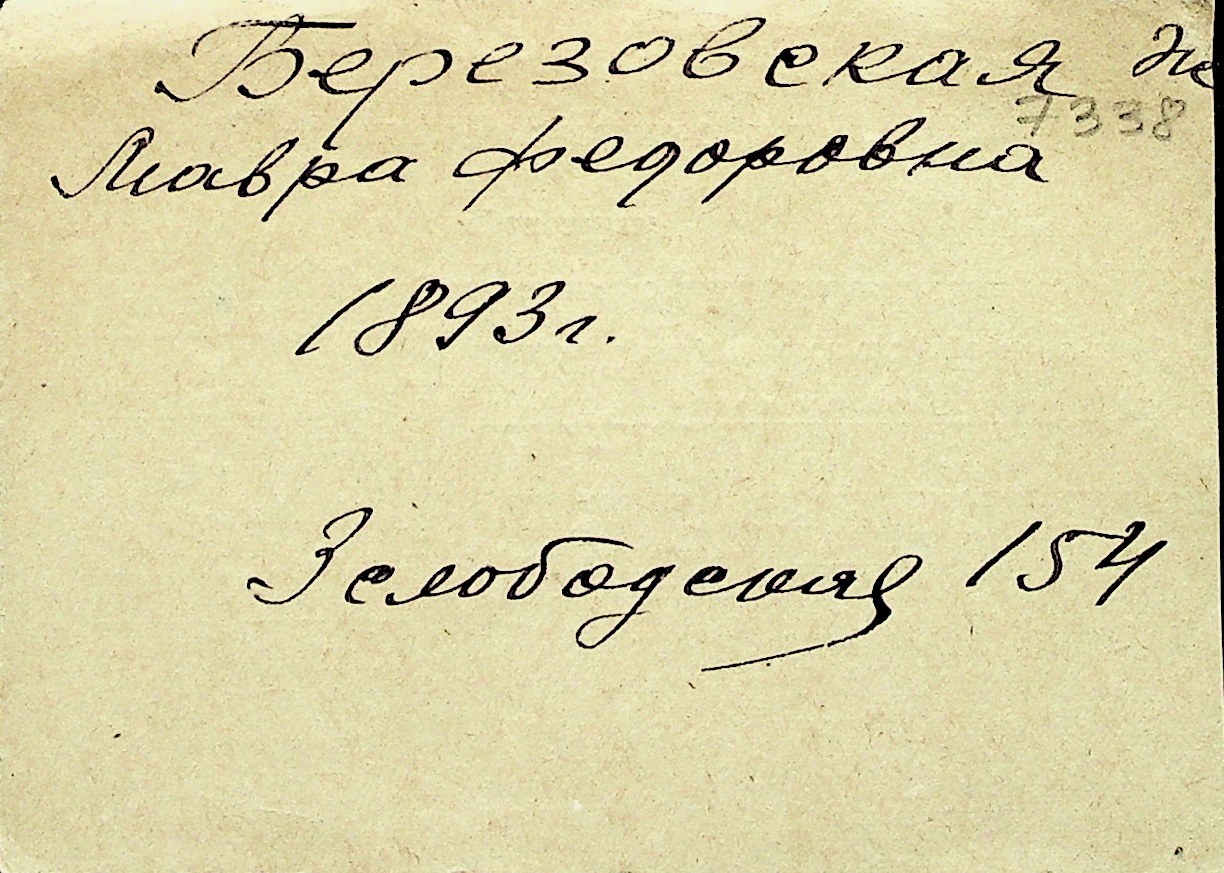 Березовская
7338
Мавра Федоровна
1893г.
3 слободская 154